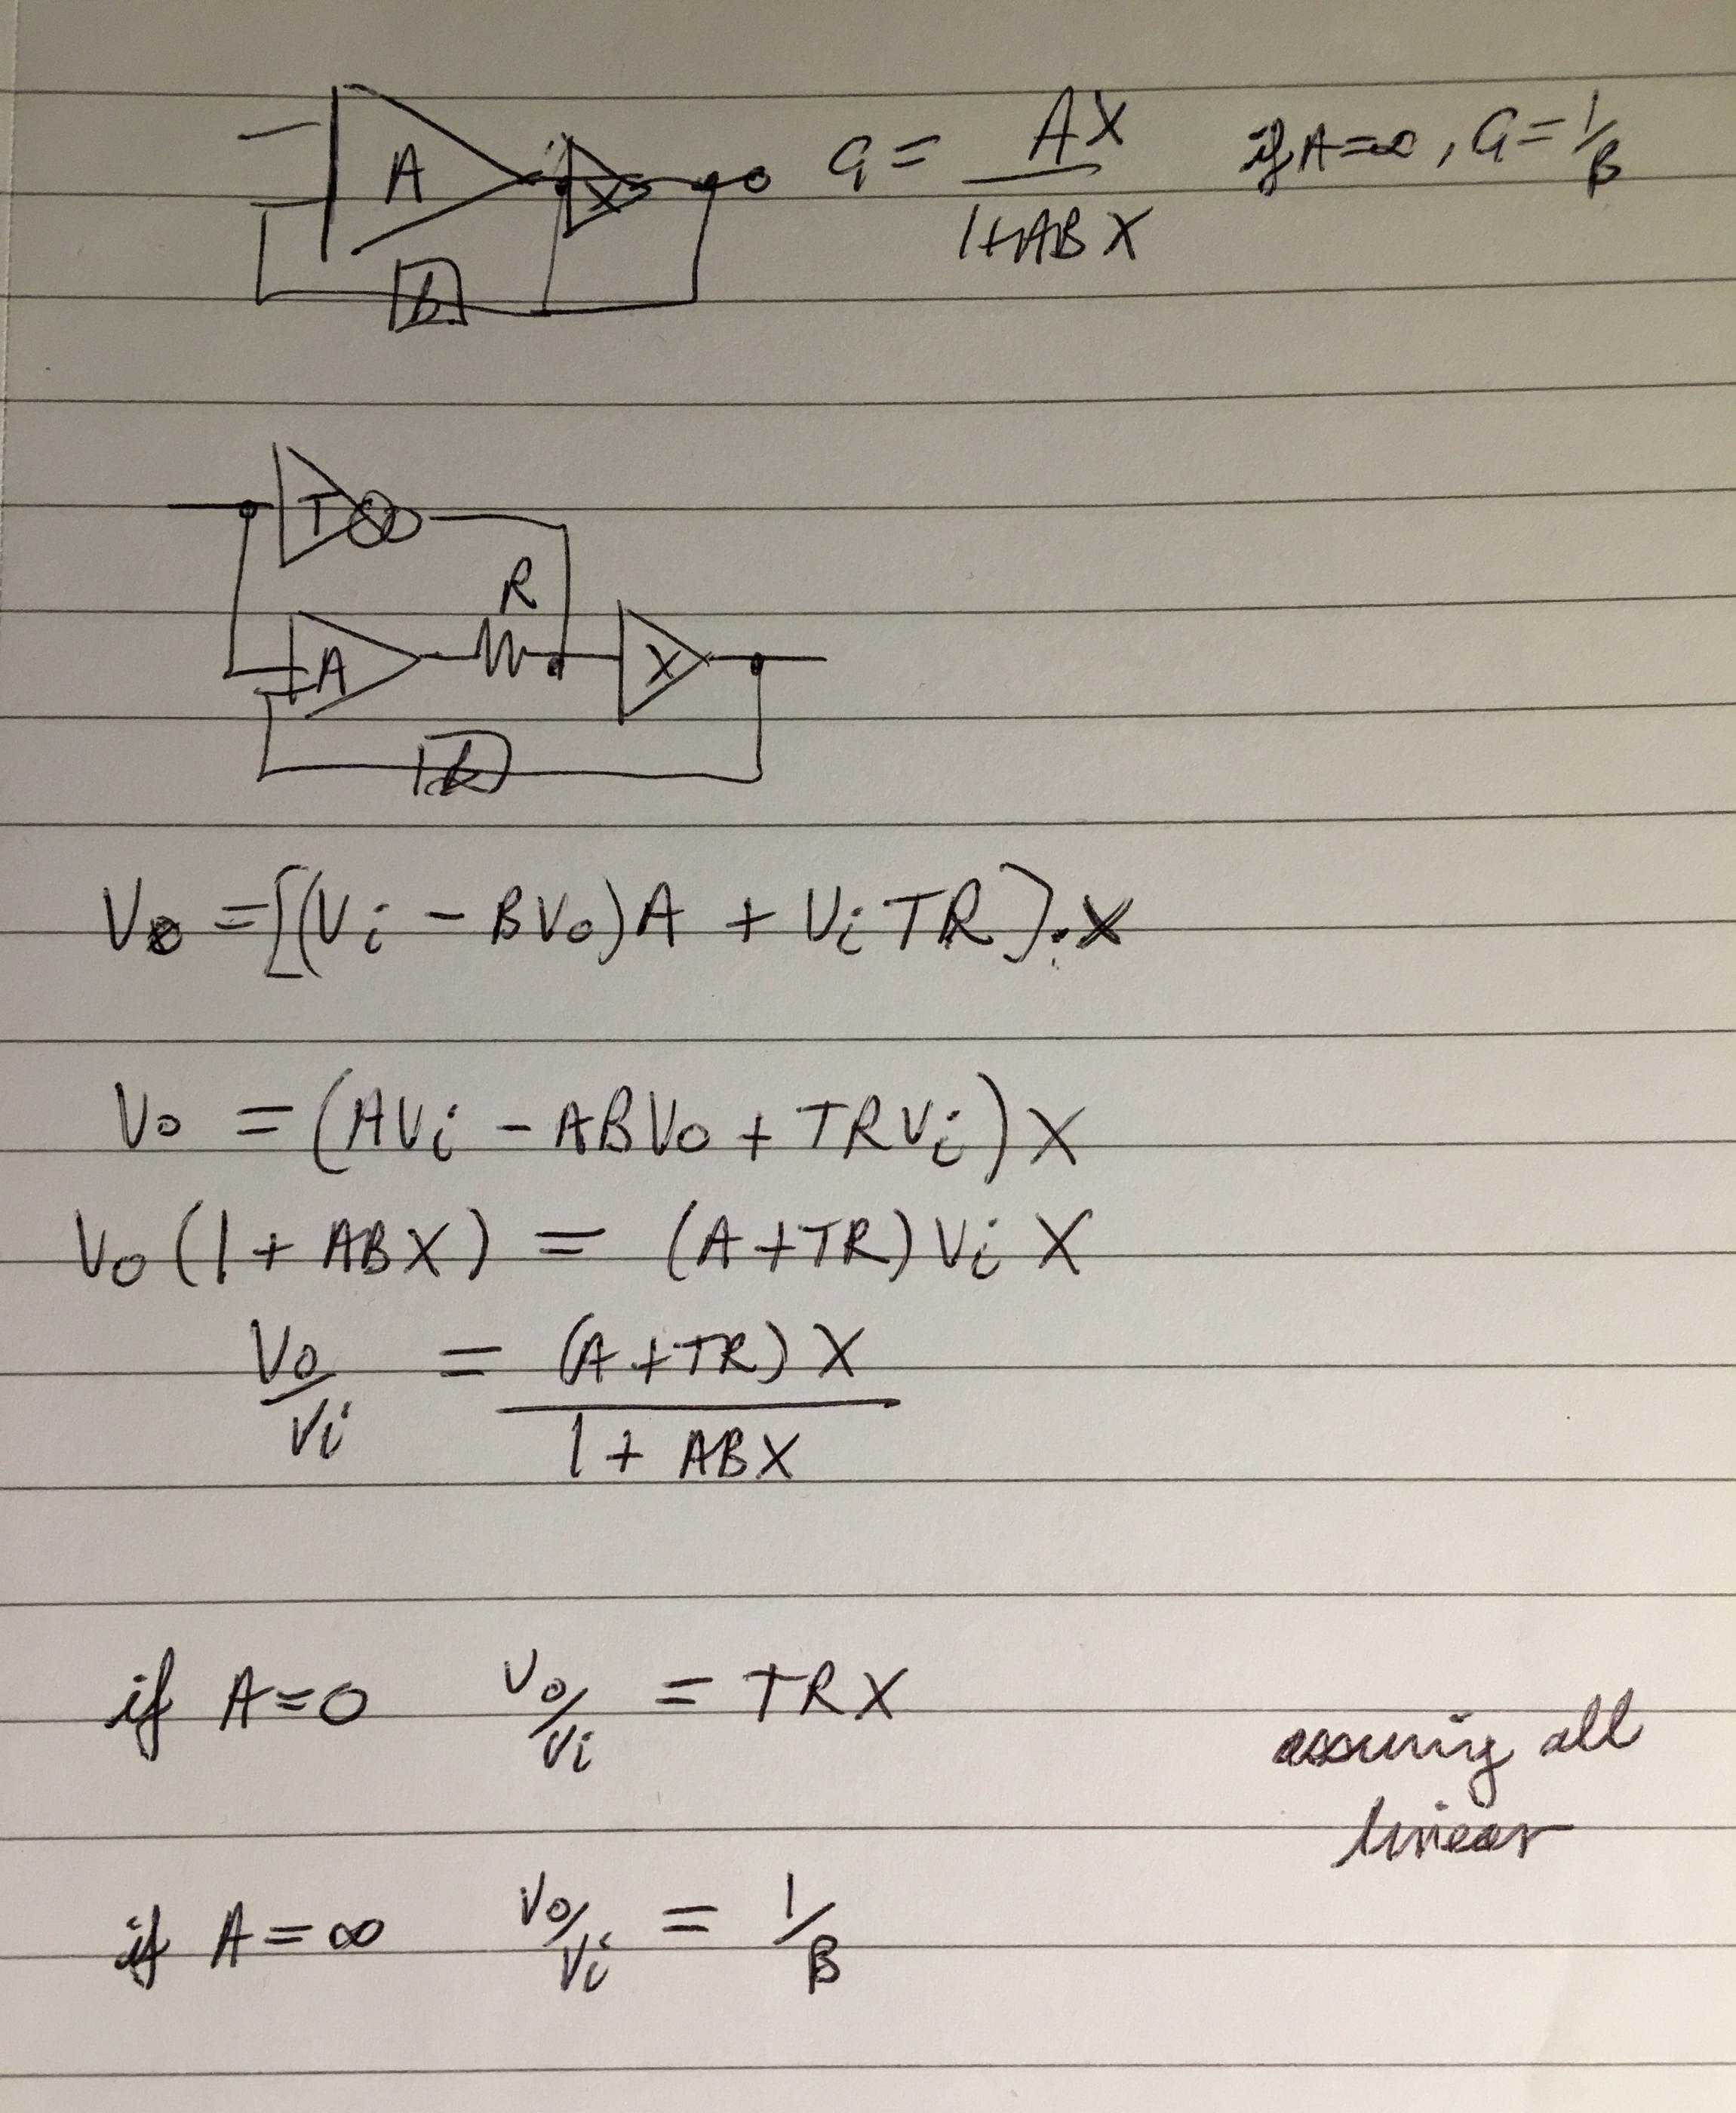 A X G = AX / 1+ABX if A=∞, G=1/B
b
T
R
A X
b
Vo = [(Vi - BVo)A + ViTR].X
Vo = (AVi - ABVo + TRVi)X
Vo(1+ABX) = (A+TR)Vi X
Vo/Vi = (A+TR)X / 1+ABX
if A=0 Vo/Vi = TRX
assuming all
linear
if A=∞ Vo/Vi = 1/B